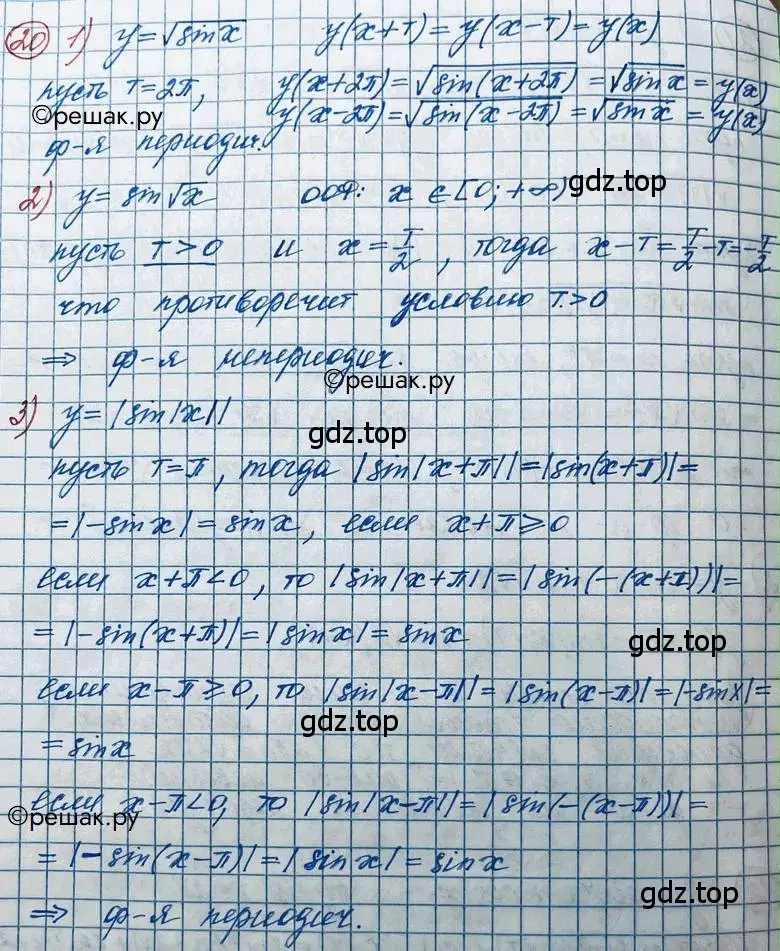 20 1) y=√sin x   y(x+T)=y(x-T)=y(x)
пусть T=2π,   y(x+2π)=√sin(x+2π) =√sin x = y(x)
©решак.ру   y(x-2π)=√sin(x-2π) =√sin x = y(x)
ф-я периодич.
2) y= sin√x   ООФ: x ∈ [0; +∞)
gdz.top
пусть T>0 и x = T/2, тогда x-T=T/2-T=-T/2
что противоречит условию T>0
⇒ ф-я непериодич.
©решак.ру
3) y=|sin|x||
gdz.top
пусть T=π, тогда |sin|x+π||=|sin(x+π)|=
=|-sin x|=sin x, если x+π⩾0
если x+π<0, то |sin|x+π||=|sin(-(x+π))|=
=|-sin(x+π)|=|sin x|= sin x
gdz.top
если x-π⩾0, то |sin|x-π||=|sin(x-π)|=|-sin x|=
gdz.top
= sin x
если x-π<0, то |sin|x-π||=|sin(-(x-π))|=
©решак.ру
=|-sin(x-π)|=|sin x|=sin x
gdz.top
⇒ ф-я периодич.